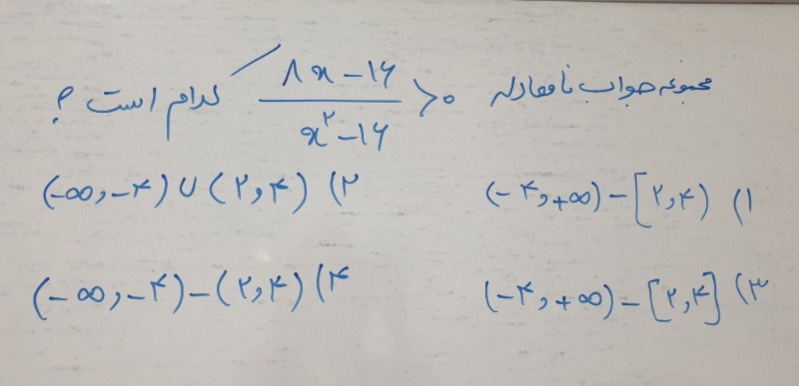 مجموعه جواب نامعادله (۸x − ۱۶)/(x^۲ − ۱۶) > ۰ کدام است ؟
۱) (−۴, +∞) − [۲, ۴) ۲) (−∞, −۴) ∪ (۲, ۴)
۳) (−۴, +∞) − [۲, ۴] ۴) (−∞, −۴) − (۲, ۴)